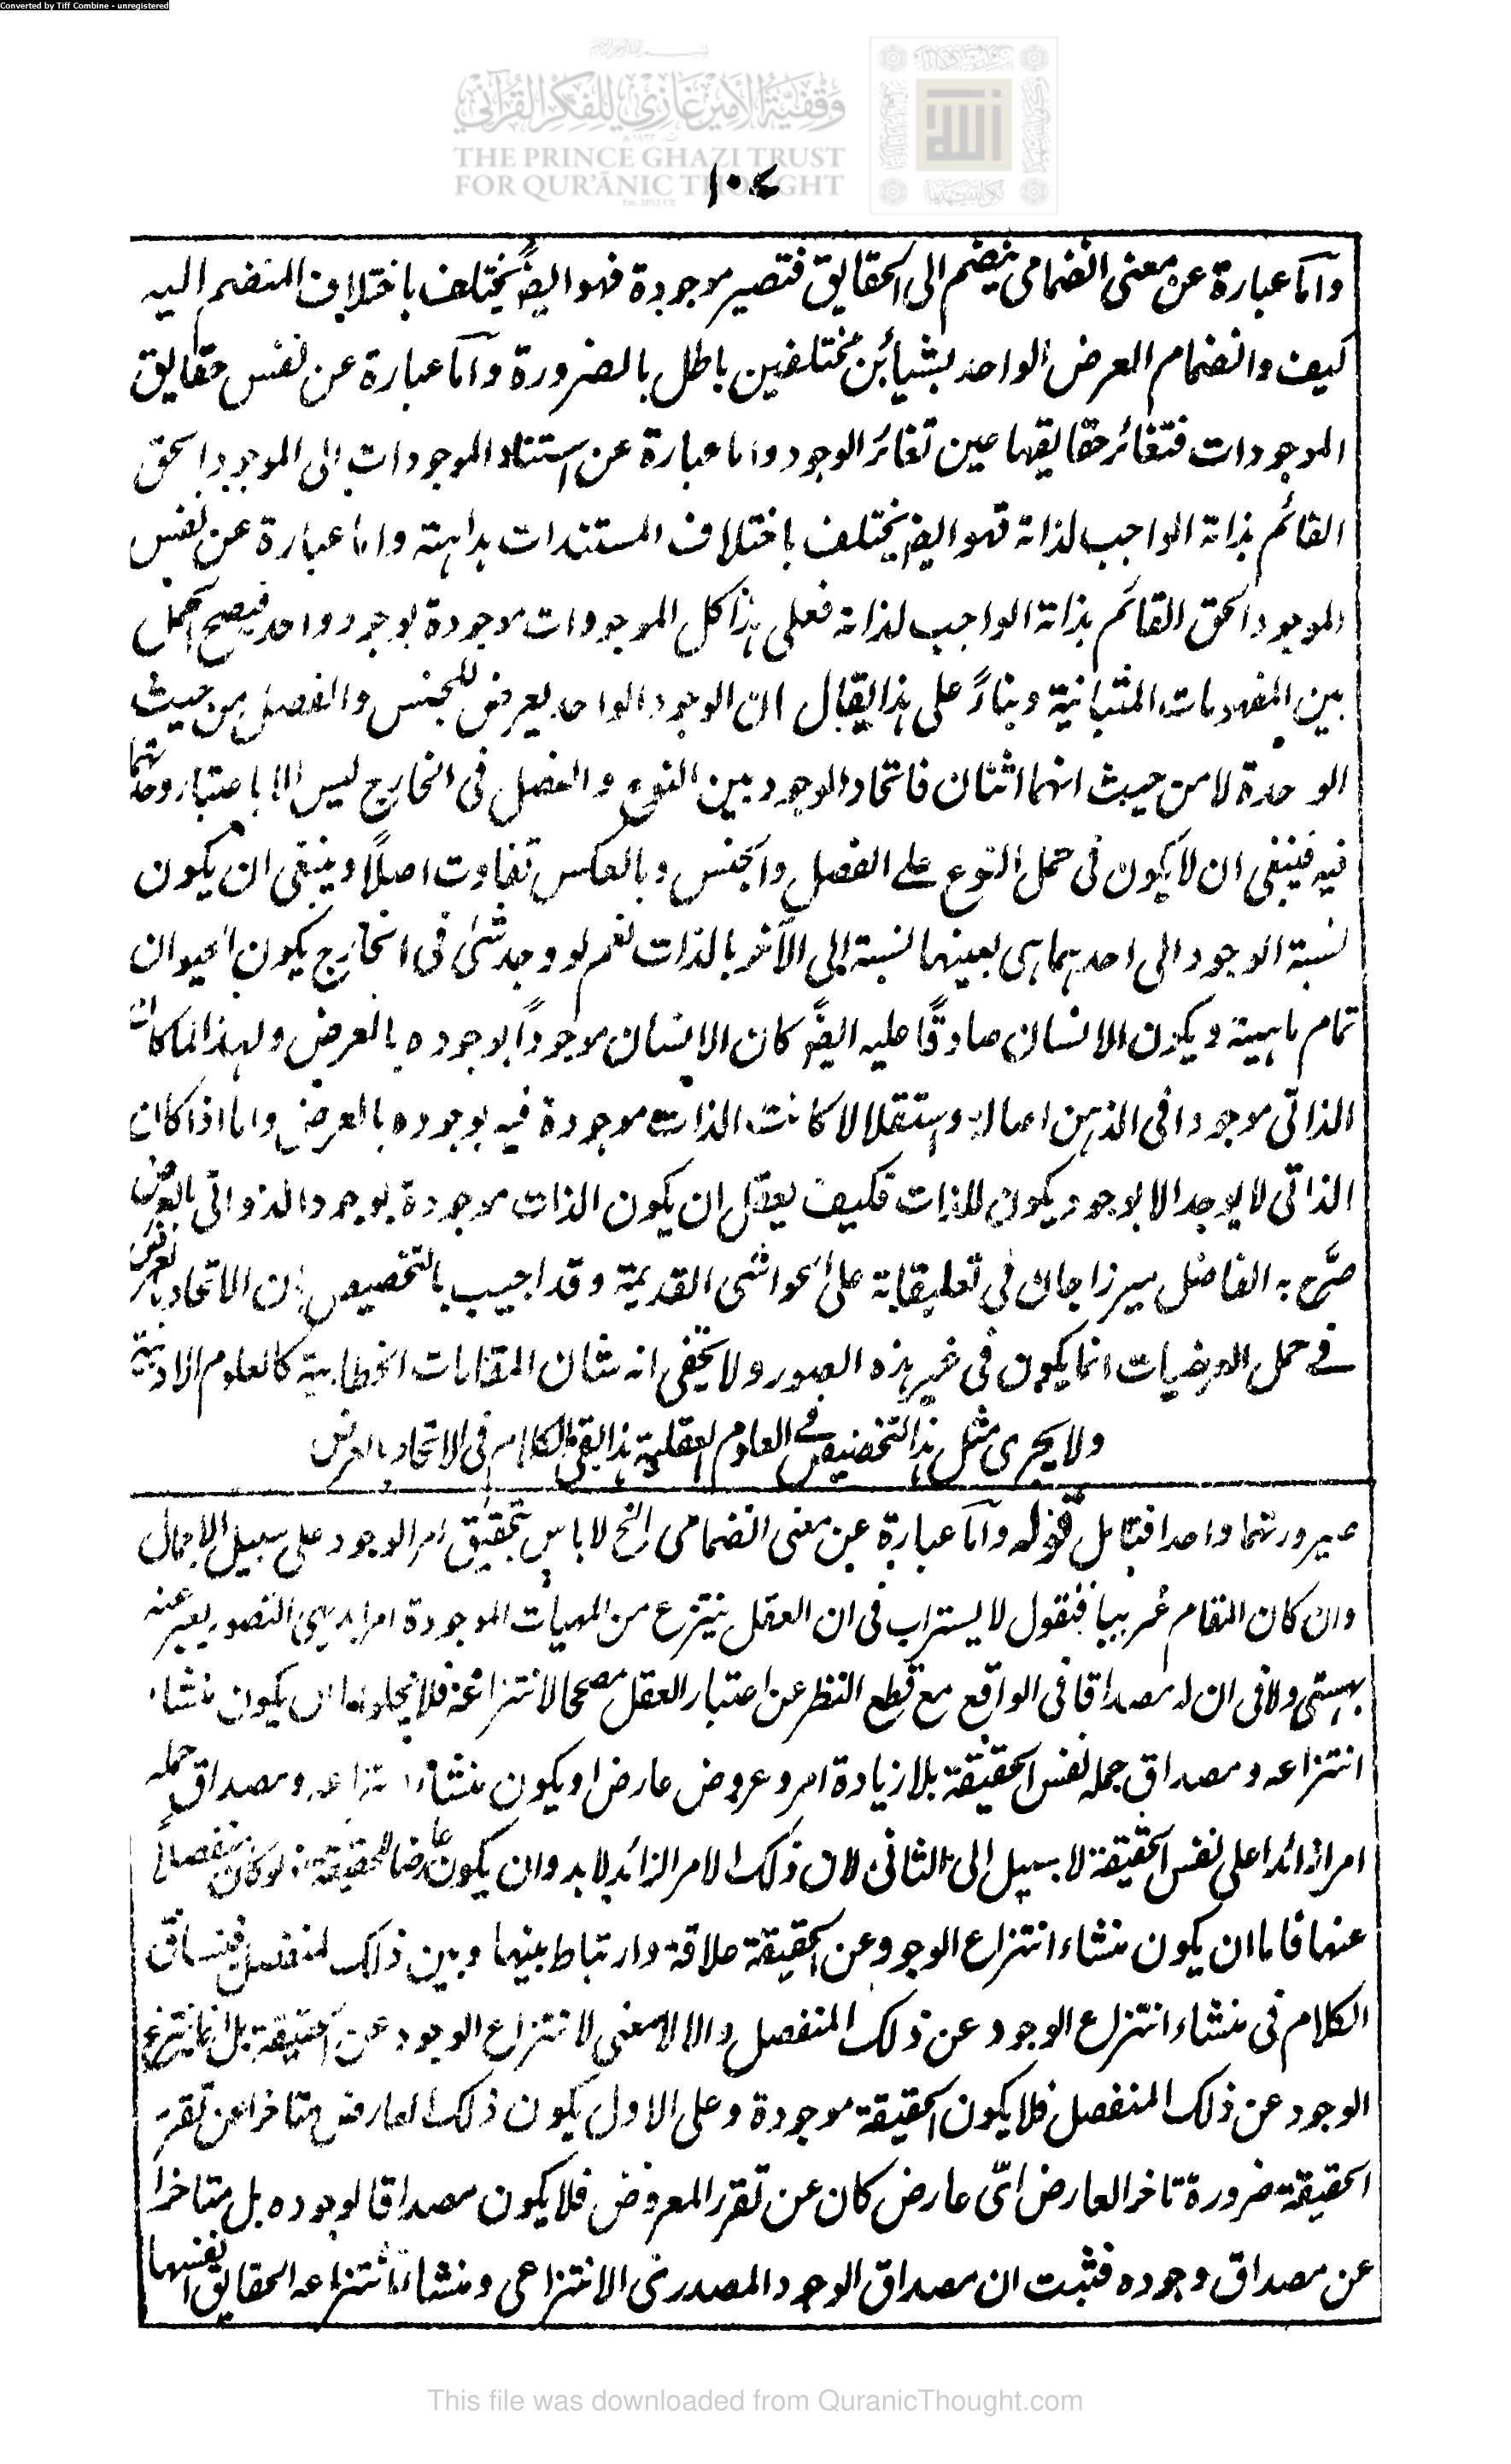 Converted by Tiff Combine - unregistered
وقفية الأمير غازي للفكر القرآني
THE PRINCE GHAZI TRUST
FOR QUR'ĀNIC THOUGHT
١٠٤
واما عبارة عن معنى انضمامى ينضم الى الحقايق فتصير موجودة فهو ايضً يختلف باختلاف المنضم اليه
كيف وانضمام العرض الواحد بشيائن مختلفين باطل بالضرورة واما عبارة عن نفس حقايق
الموجودات فتغائر حقايقها عين تغائر الوجود واما عبارة عن استناد الموجودات الى الموجود الحق
القائم بذاته الواجب لذاته فهو ايض يختلف باختلاف المستندات بداهته واما عبارة عن نفس
الموجود الحق القائم بذاته الواجب لذاته فعلى هذا كل الموجودات موجودة بوجود واحد فيصح الحمل
بين المفهومات المتبائنة وبناءً على هذا يقال ان الوجود الواحد يعرض للجنس والفصل من حيث
الوحدة لا من حيث انهما اثنان فاتحاد الوجود بين النوع والفصل فى الخارج ليس الا باعتبار وحدتهما
فيه فينبغى ان لا يكون فى حمل النوع على الفصل والجنس وبالعكس تفاوت اصلاً وينبغى ان يكون
نسبة الوجود الى احدهما هى بعينها نسبة الى الآخر بالذات نعم لو وجد شئ فى الخارج يكون الحيوان
تمام ماهيته ويكون الانسان صادقًا عليه ايضً كان الانسان موجوداً بوجوده بالعرض ولهذا لما كان
الذاتى موجودا فى الذهن اصالة واستقلالا كانت الذات موجودة فيه بوجوده بالعرض واما اذا كان
الذاتى لا يوجد الا بوجود يكون للذات فكيف يعقل ان يكون الذات موجودة بوجود الذواتى بالعرض
صرّح به الفاضل ميرزا جان فى تعليقاته على الحواشى القديمة وقد اجيب بالتخصيص بان الاتحاد بالعرض
فى حمل العرضيات انما يكون فى غير هذه الصور ولا يخفى انه شان المقامات الخطابية كالعلوم الادبية
ولا يجرى مثل هذا التخصيص فى العلوم العقلية هذا بقى الكلام فى الاتحاد بالعرض
صيرورتهما واحدا فتامل قوله واما عبارة عن معنى انضمامى الخ لا باس بتحقيق امر الوجود على سبيل الاجمال
وان كان المقام غريبا فنقول لا يستراب فى ان العقل ينتزع من المهيات الموجودة امرا بديهى التصور يعبر عنه
بهستى ولا فى ان له مصداقا فى الواقع مع قطع النظر عن اعتبار العقل مصححا لانتزاعه فلا يخلو اما ان يكون منشاء
انتزاعه ومصداق حمله نفس الحقيقة بلا زيادة امر وعروض عارض او يكون منشاء انتزاعه ومصداق حمله
امرا زائدا على نفس الحقيقة لا سبيل الى الثانى لان ذلك الامر الزائد لا بد وان يكون عارضا للحقيقة اذ لو كان منفصلاً
عنها فاما ان يكون منشاء انتزاع الوجود عن الحقيقة علاقة وارتباط بينها وبين ذلك المنفصل فينساق
الكلام فى منشاء انتزاع الوجود عن ذلك المنفصل والا لا معنى لانتزاع الوجود عن الحقيقة بل انما ينتزع
الوجود عن ذلك المنفصل فلا يكون الحقيقة موجودة وعلى الاول يكون ذلك العارض متاخرا عن تقرر
الحقيقة ضرورة تاخر العارض اىّ عارض كان عن تقرر المعروض فلا يكون مصداقا لوجوده بل متاخرا
عن مصداق وجوده فثبت ان مصداق الوجود المصدرى الانتزاعى ومنشاء انتزاعه الحقايق انفسها
This file was downloaded from QuranicThought.com